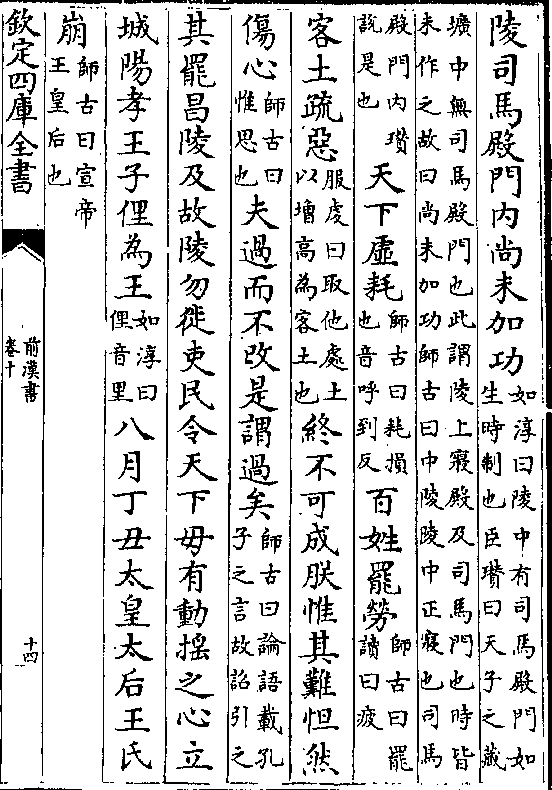 陵司馬殿門内尚未加功如淳曰陵中有司馬殿門如生時制也臣瓚曰天子之藏
壙中無司馬殿門也此謂陵上寢殿及司馬門也時皆未作之故曰尚未加功師古曰中陵陵中正寢也司馬
殿門内瓚說是也天下虛耗師古曰耗損也音呼到反百姓罷勞師古曰罷讀曰疲
客土疏惡服虔曰取他處土以增高為客土也終不可成朕惟其難怛然
傷心師古曰惟思也夫過而不改是謂過矣師古曰論語載孔子之言故詔引之
其罷昌陵及故陵勿徙吏民令天下毋有動搖之心立
城陽孝王子俚為王如淳曰俚音里八月丁丑太皇太后王氏
崩師古曰宣帝王皇后也
欽定四庫全書
前漢書
卷十
十四